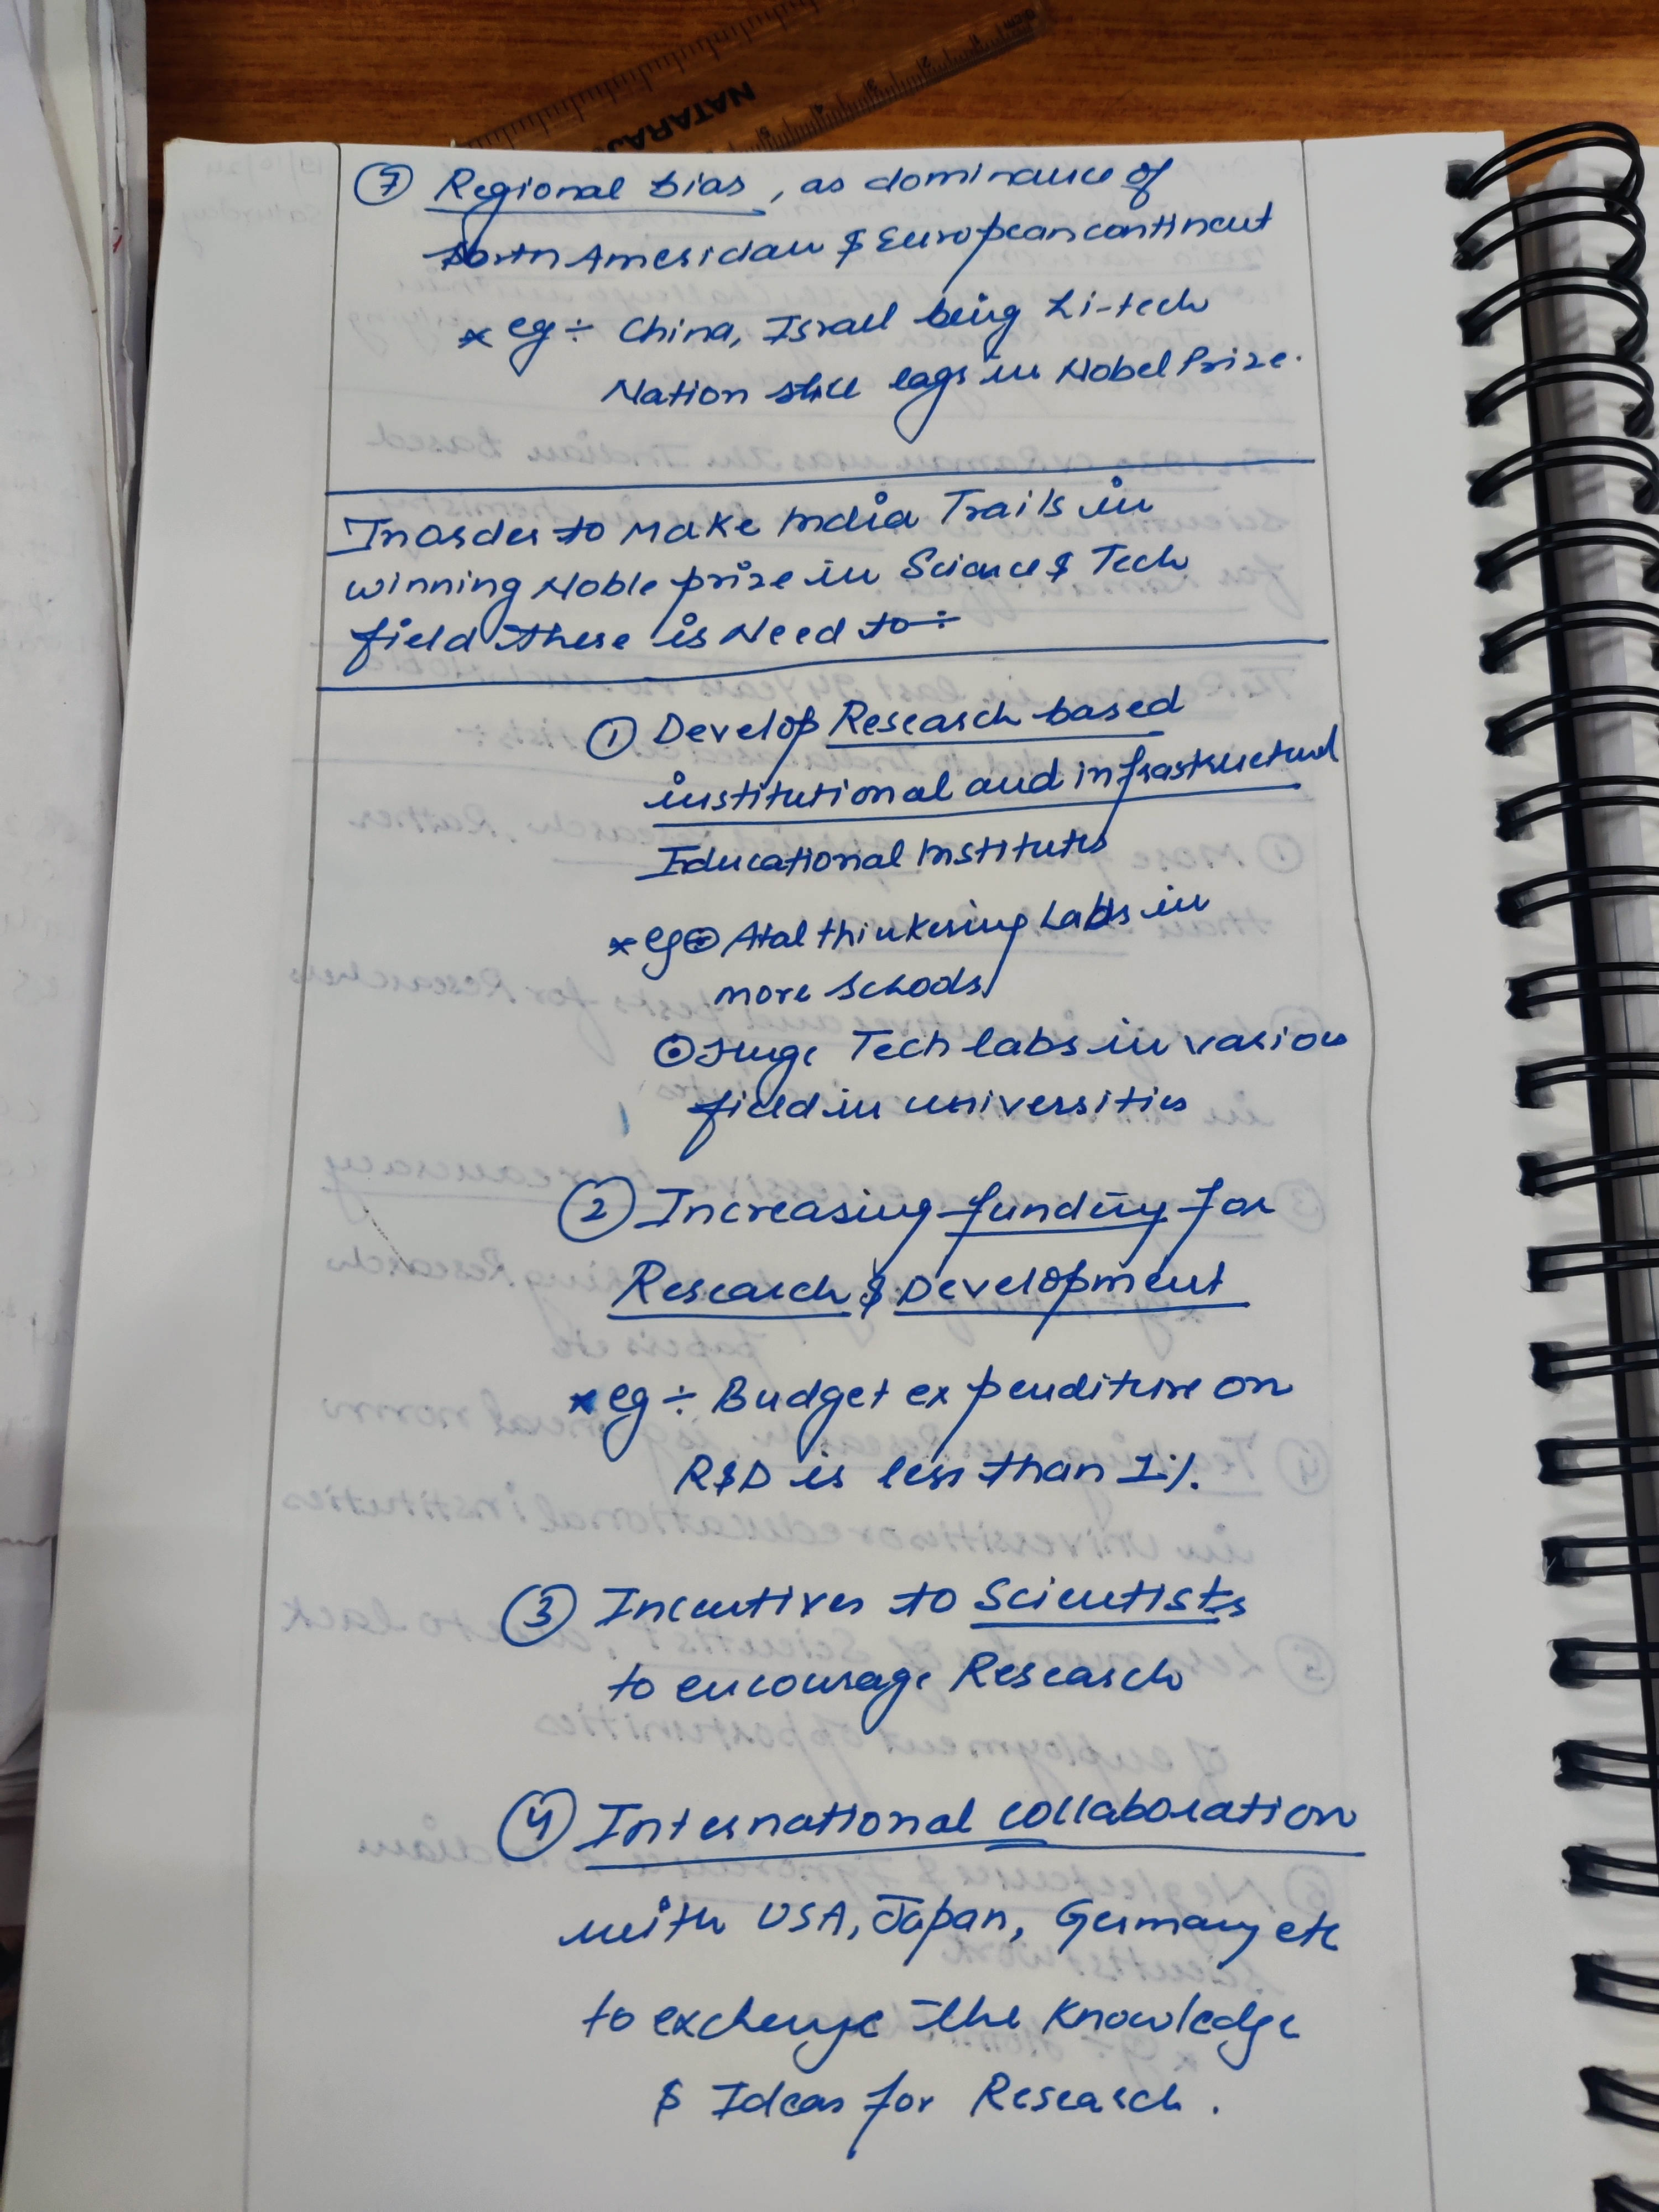 NATARAJ
⑦ Regional bias, as dominance of
North American & European continent
* eg ÷ China, Israel being hi-tech
Nation still lags in Nobel Prize.
Inorder to Make India Trails in
winning Noble prize in Science & Tech
field there is Need to ÷
① Develop Research based
institutional and infrastructural
Educational Institutes
* eg ⊙ Atal thinkering Labs in
more schools
⊙ Huge Tech labs in various
field in universities
② Increasing funding for
Research & Development
* eg ÷ Budget expenditure on
R&D is less than 1%.
③ Incentives to Scientists
to encourage Research
④ International collaboration
with USA, Japan, Germany etc
to exchange the Knowledge
& Ideas for Research.